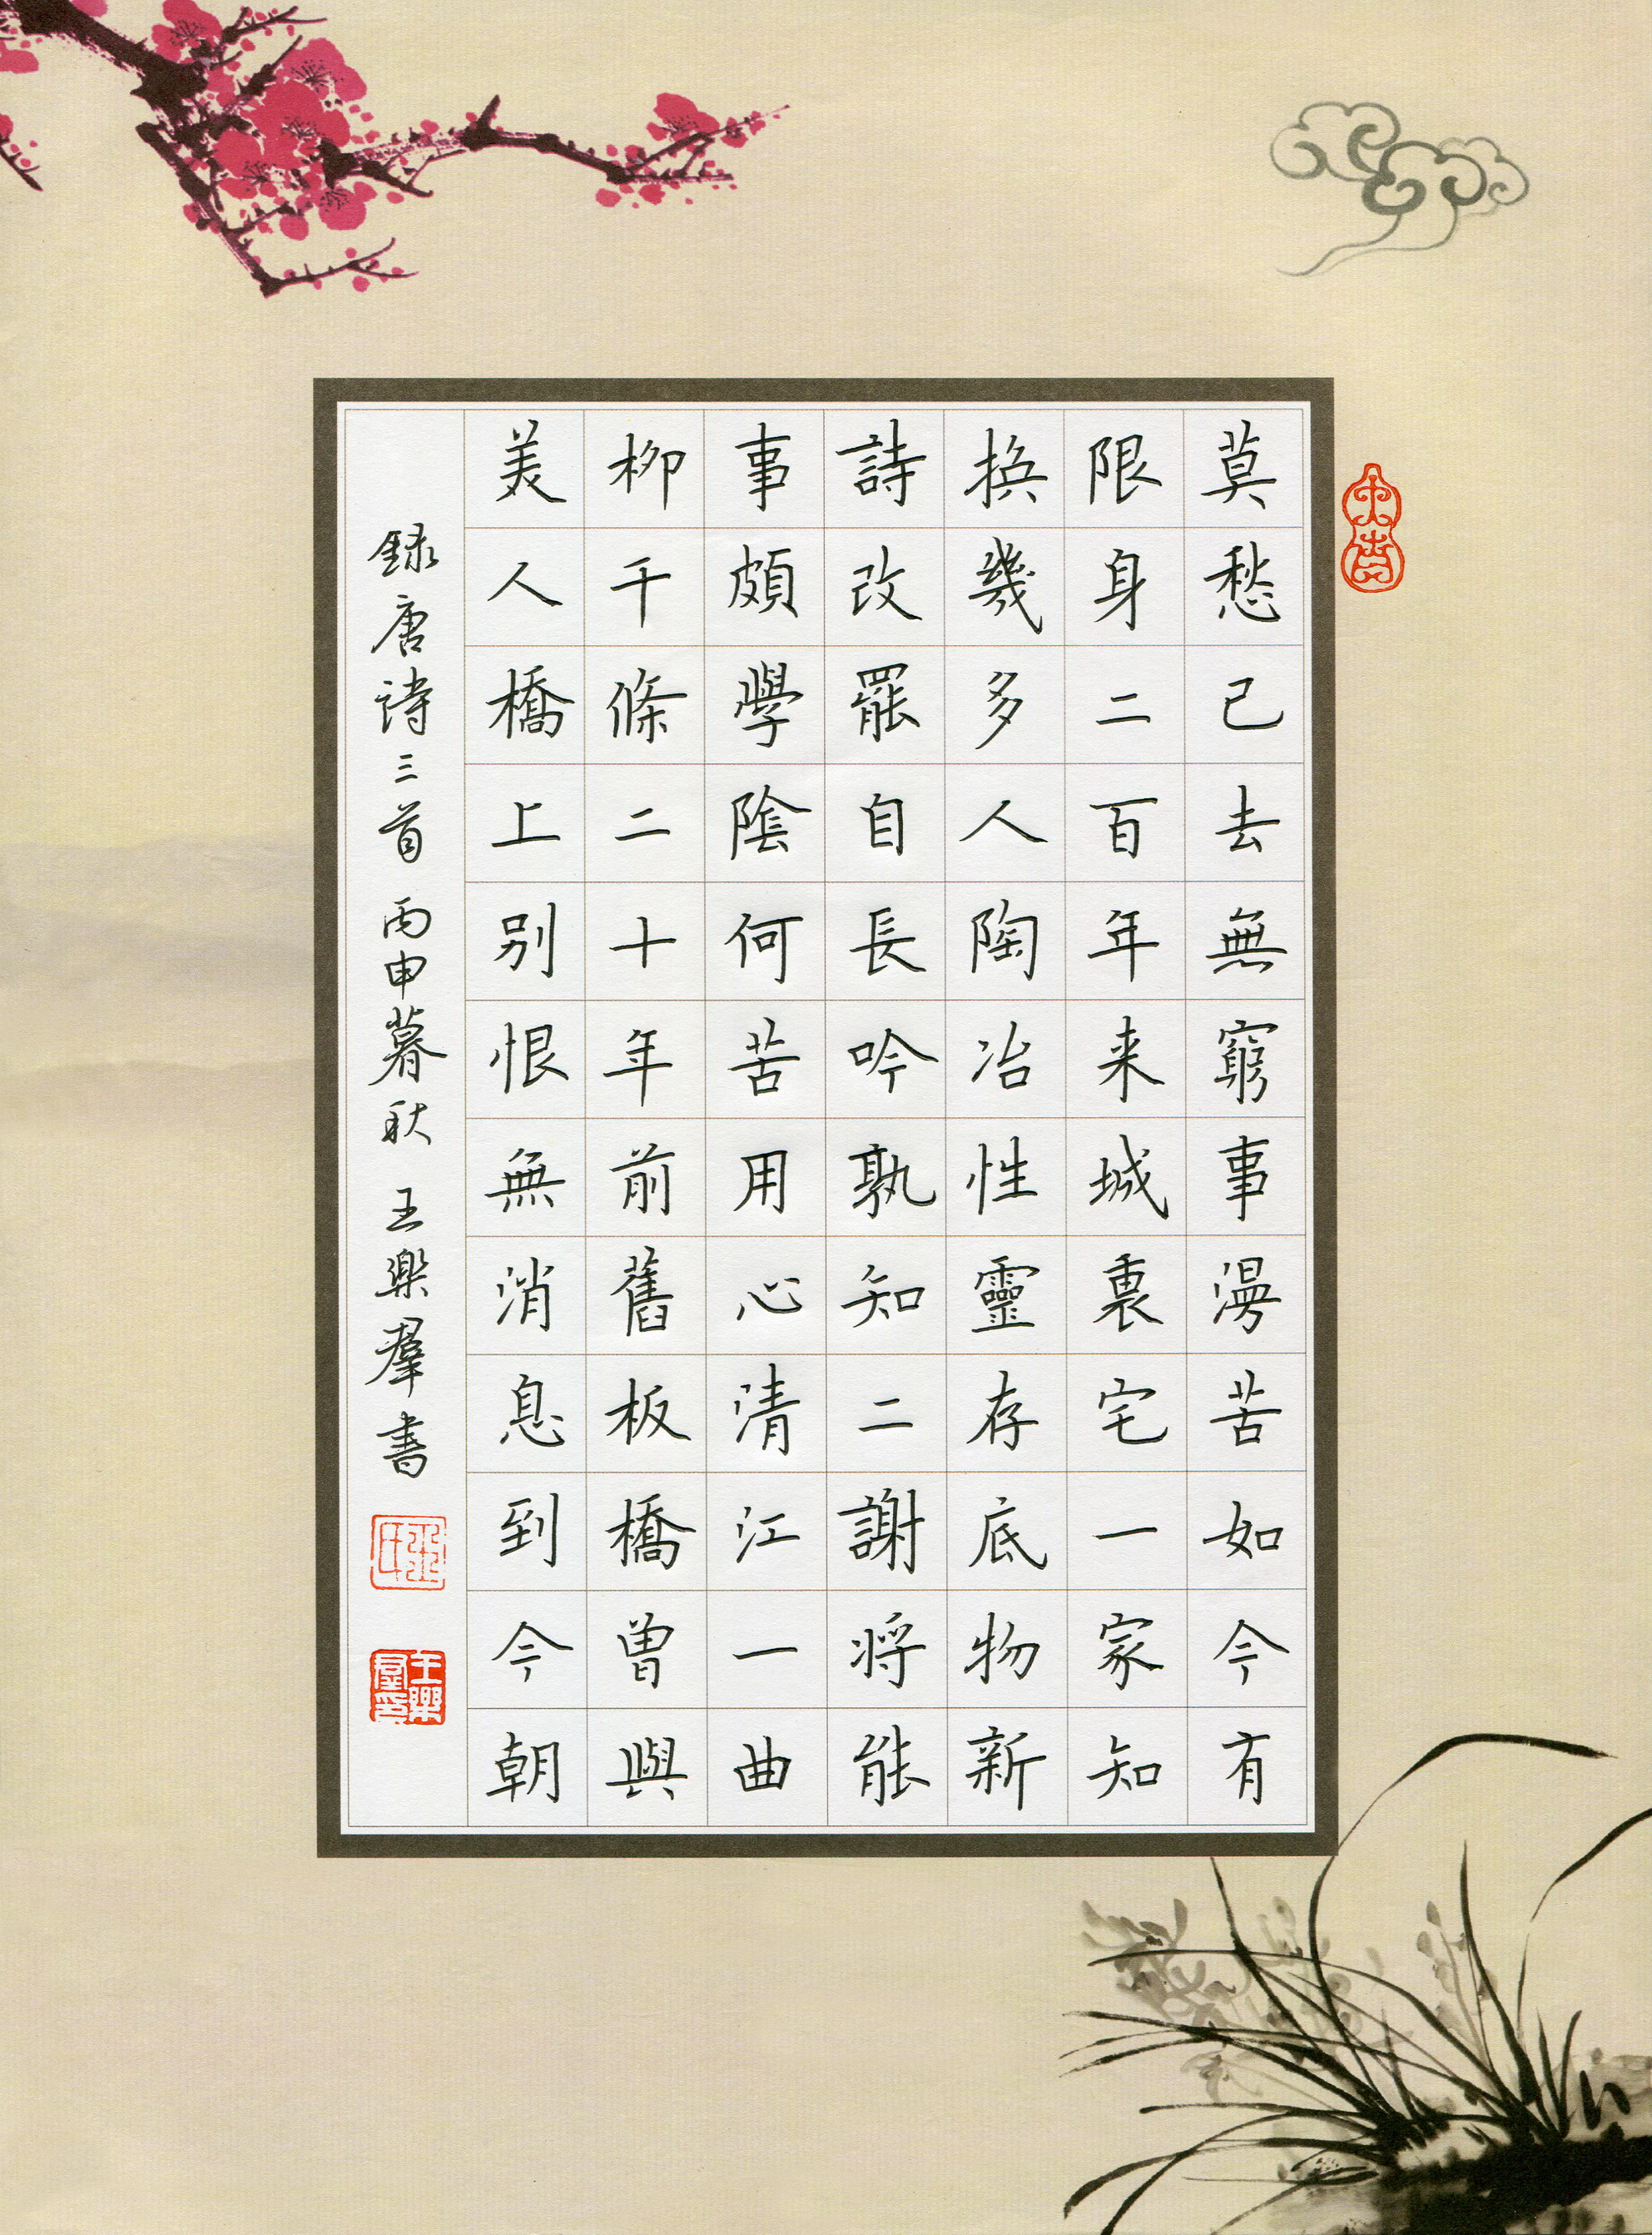 莫愁已去無窮事漫苦如今有
限身二百年来城裏宅一家知
換幾多人陶冶性靈存底物新
詩改罷自長吟孰知二謝将能
事頗學陰何苦用心清江一曲
柳千條二十年前舊板橋曾與
美人橋上别恨無消息到今朝
録唐詩三首 丙申暮秋 王樂羣書
王樂羣印